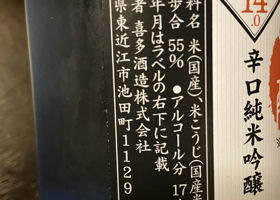 14
.0
辛口純米吟醸
料名 米(国産)、米こうじ(国産米
歩合 55% ●アルコール分 17
年月はラベルの右下に記載
者 喜多酒造株式会社
県東近江市池田町1129